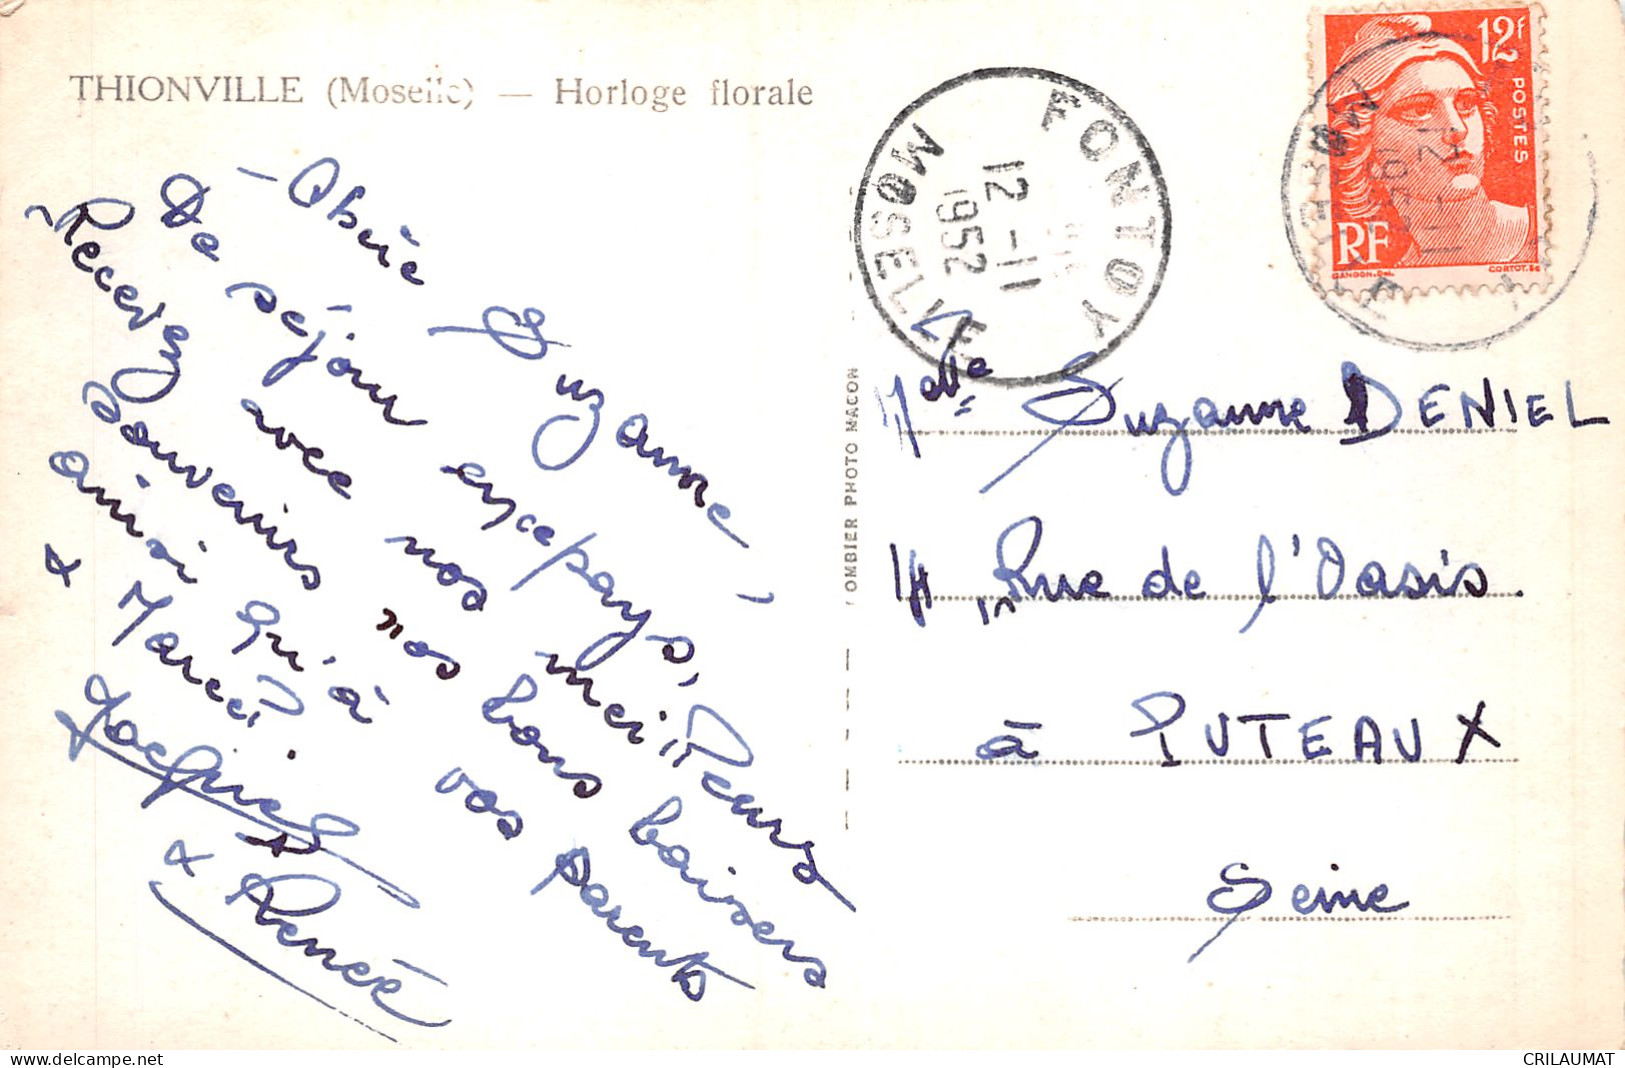 THIONVILLE (Moselle) — Horloge florale
- Chère Suzanne,
De séjour en ce pays,
Recevez avec nos meilleurs
souvenirs nos bons baisers
ainsi qu'à vos parents
& Marcel.
Jacquie
& Renée
COMBIER PHOTO MACON
FONTOY
12-11
1952
MOSELLE
12F
POSTES
RF
GANDON.Del.
CORTOT.Sc
12-11
1952
MOSELLE
Melle Suzanne DENIEL
14, Rue de l'Oasis.
à PUTEAUX
Seine
delcampe.net
CRILAUMAT